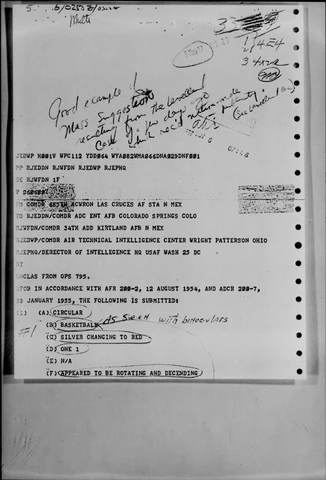 White
1/4E4
Good example of
Mass Suggestion
resulting from the Loveland
Case of a few days ago
which rec'd nationwide
publicity.
JEDWP M001V WPC112 YDD064 WYA822WHA066DNA029DNF001
PP RJEDDN RJWFDN RJEDWP RJEPHQ
DE RJWFDN 1F
P
FM COMDR 685TH ACWRON LAS CRUCES AF STA N MEX
TO RJEDDN/COMDR ADC ENT AFB COLORADO SPRINGS COLO
RJWFDN/COMDR 34TH ADD KIRTLAND AFB N MEX
RJEDWP/COMDR AIR TECHNICAL INTELLIGENCE CENTER WRIGHT PATTERSON OHIO
RJEPHQ/DIRECTOR OF INTELLIGENCE HQ USAF WASH 25 DC
BT
UNCLAS FROM OPS 795.
UFOB IN ACCORDANCE WITH AFR 200-2, 12 AUGUST 1954, AND ADCR 200-7,
JANUARY 1955, THE FOLLOWING IS SUBMITTED:
(1) (A) CIRCULAR
#1 (B) BASKETBALL AS SEEN with binoculars
(C) SILVER CHANGING TO RED
(D) ONE 1
(E) N/A
(F) APPEARED TO BE ROTATING AND DECENDING